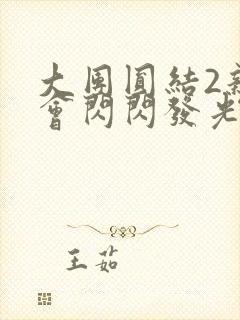 大團圓結2
會閃閃發光
王茹